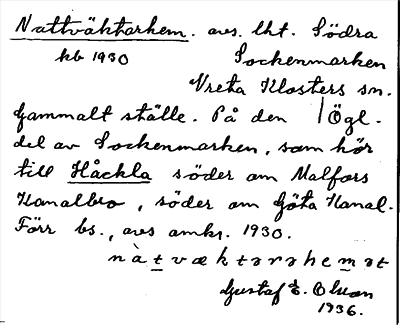 Nattväktarhem. avs. lht. Södra
kb 1930 Sockenmarken
Vreta Klosters sn.
Gammalt ställe. På den | Ögl.
del av Sockenmarken, som hör
till Håckla söder om Malfors
Kanalbro, söder om Göta Kanal.
Förr bs., avs omkr. 1930.
nàtvæktarahemət
Gustaf E. Olson
1936.